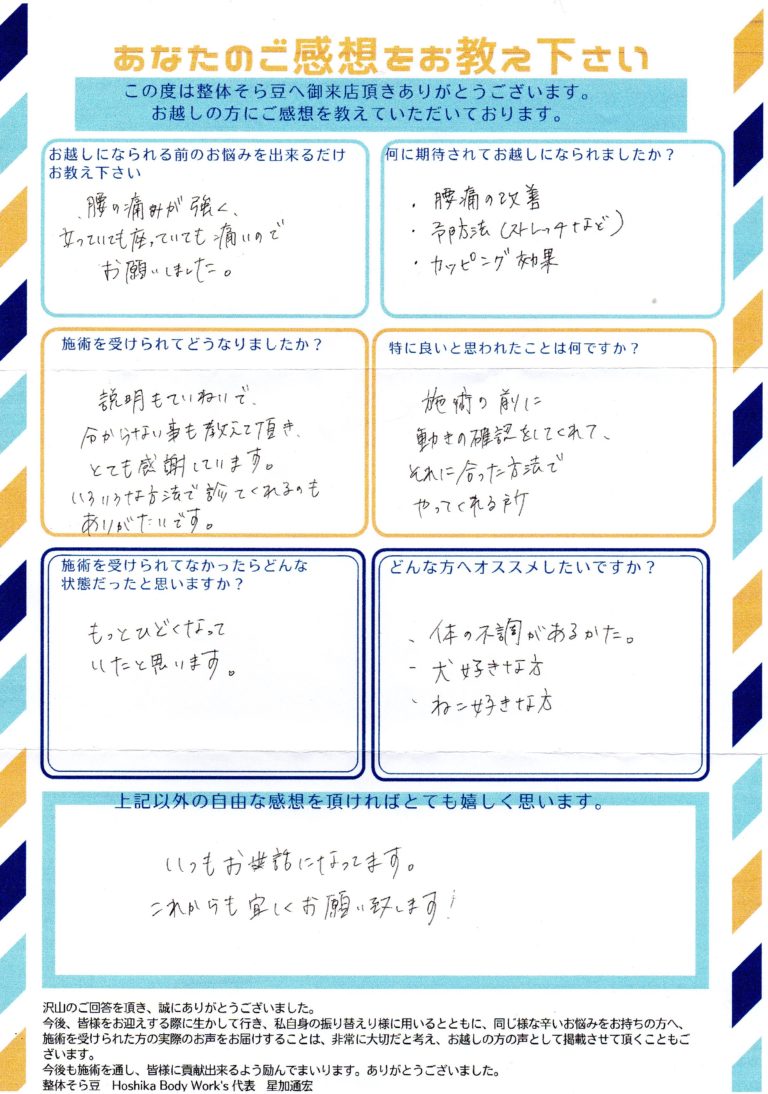 あなたのご感想をお教え下さい
この度は整体そら豆へ御来店頂きありがとうございます。
お越しの方にご感想を教えていただいております。
お越しになられる前のお悩みを出来るだけ
お教え下さい
、腰の痛みが強く、
立っていても座っていても痛いので
お願いしました。
何に期待されてお越しになられましたか？
・腰痛の改善
・予防法（ストレッチなど）
・カッピング効果
施術を受けられてどうなりましたか？
説明もていねいで、
分からない事も教えて頂き、
とても感謝しています。
いろいろな方法で診てくれるのも
ありがたいです。
特に良いと思われたことは何ですか？
施術の前に
動きの確認をしてくれて、
それに合った方法で
やってくれる所
施術を受けられてなかったらどんな
状態だったと思いますか？
もっとひどくなって
いたと思います。
どんな方へオススメしたいですか？
、体の不調があるかた。
・犬好きな方
・ねこ好きな方
上記以外の自由な感想を頂ければとても嬉しく思います。
いつもお世話になってます。
これからも宜しくお願い致します！
沢山のご回答を頂き、誠にありがとうございました。
今後、皆様をお迎えする際に生かして行き、私自身の振り替えり様に用いるとともに、同じ様な辛いお悩みをお持ちの方へ、
施術を受けられた方の実際のお声をお届けすることは、非常に大切だと考え、お越しの方の声として掲載させて頂くこともご
ざいます。
今後も施術を通し、皆様に貢献出来るよう励んでまいります。ありがとうございました。
整体そら豆　Hoshika Body Work's 代表　星加通宏